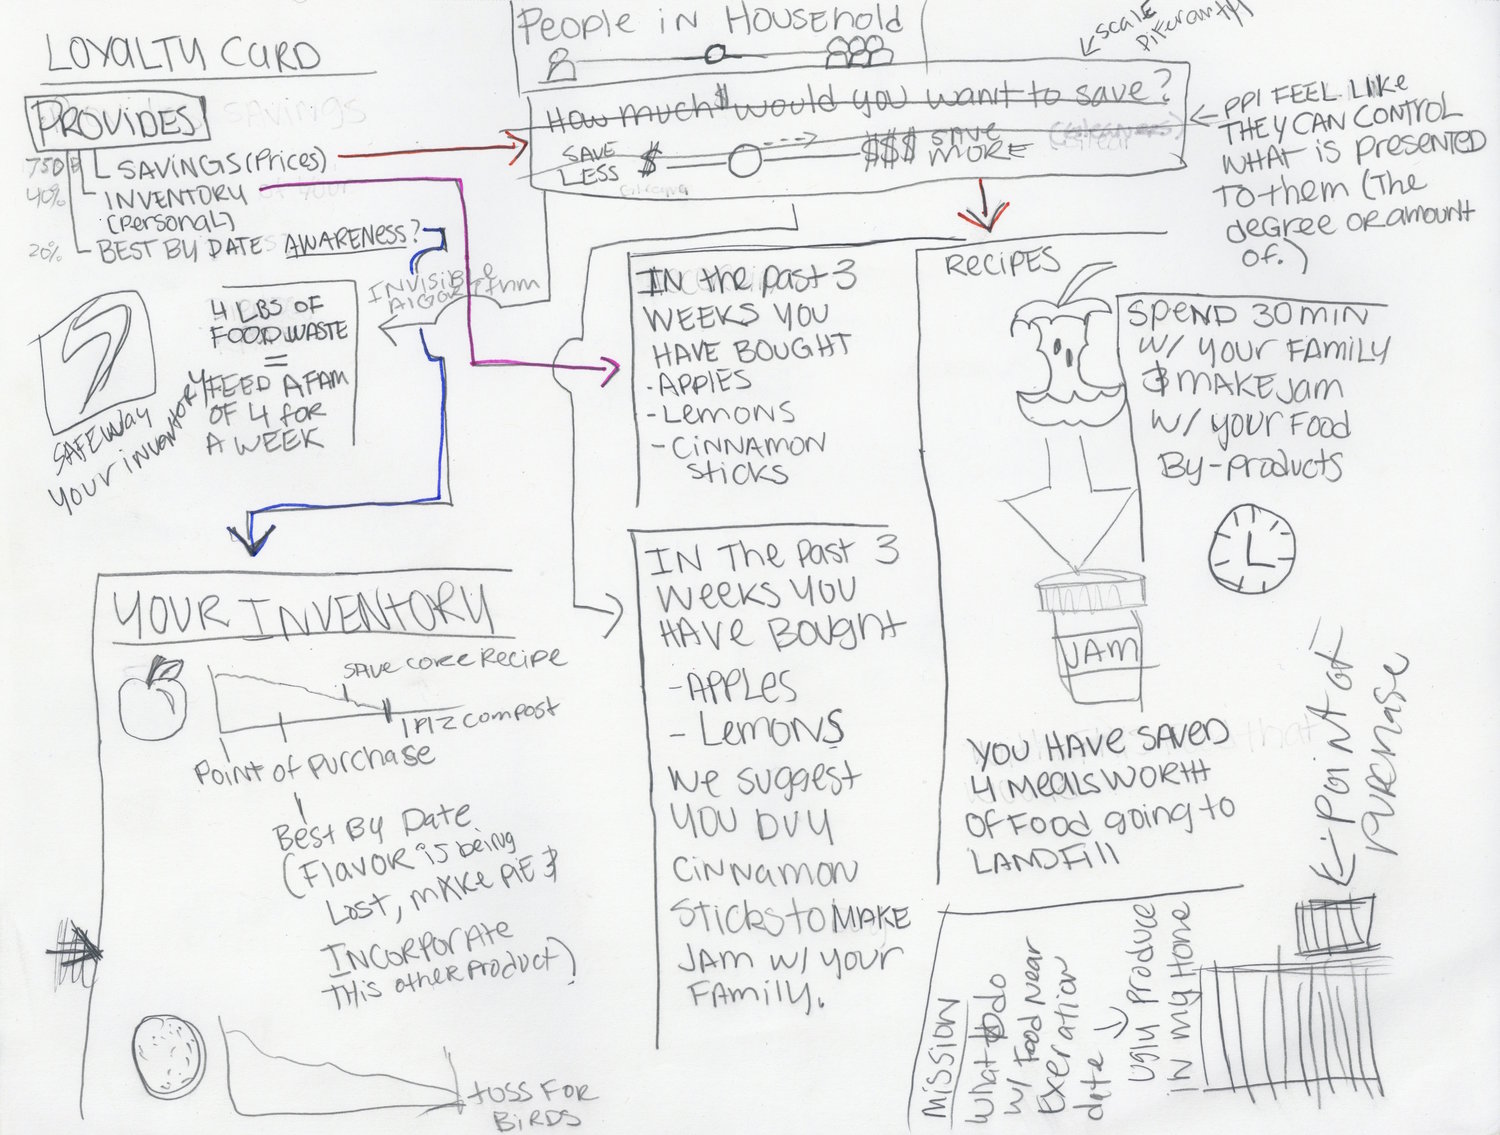 LOYALTY CARD
PROVIDES
SAVINGS (Prices)
INVENTORY
(Personal)
BEST BY DATE AWARENESS?
40%
20%
INVISIBLE
4 LBS OF
FOOD WASTE
=
FEED A FAM
OF 4 for
A WEEK
SAFEWAY
YOUR INVENTORY
People in Household
How much $ would you want to save?
SAVE
LESS
$
$$$ SAVE
MORE
SCALE
PPl FEEL LIKE
THEY CAN CONTROL
WHAT is presented
To them (The
degree or amount
of.)
In the past 3
WEEKS YOU
HAVE BOUGHT
- APPlES
- Lemons
- CiNNAMON
Sticks
IN The Past 3
Weeks YOU
HAVe Bought
- APPLES
- Lemons
We suggest
YOU BUY
CiNNamon
Sticks to MAKE
JAM w/ your
FAMILY.
RECIPES
SPEND 30 min
w/ your FAMILY
& MAKE Jam
w/ your Food
By-products
JAM
YOU HAVE SAVED
4 meals worth
OF FOOD going to
LANDFill
YOUR INVENTORY
SAVE CORE RECIPE
COMPOST
Point of Purchase
Best By Date
(FLAVOR is being
Lost, MAKe PIE &
INCORPORATE
THis other Product)
toss FOR
BiRDS
Mission
What to do
w/ Food Near
Exeration
date
Ugly Produce
in my Home
Point of
Purchase